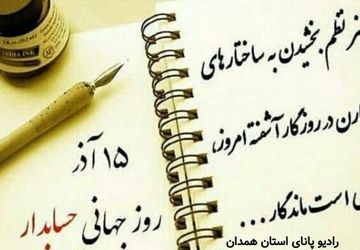 نظم بخشیدن به ساختارهای
در روزگار آشفته امروز،
است ماندگار ...
۱۵ آذر
روز جهانی حسابدار
رادیو پانای استان همدان